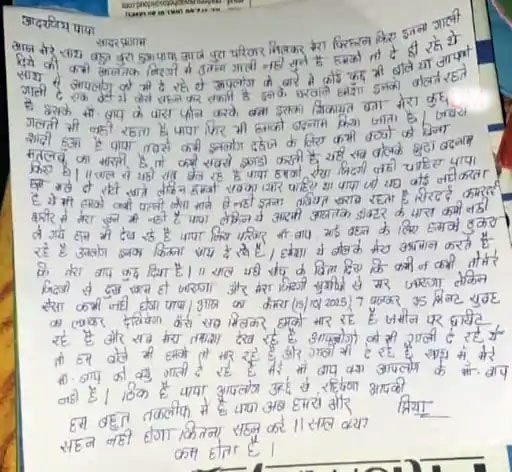 आदरणीय पापा
सादर प्रणाम
आज मेरे साथ बहुत बुरा हुआ पापा आज पुरा परिवार मिलकर मेरा किया इतना गाली
दिये की कभी आजतक जिंदगी में इतना गाली नहीं सुने है हमको तो दे ही रहे थे
साथ में आपलोग को भी दे रहे थे आपलोग के बारे में कोई कुछ भी बोले या आपको
गाली दे एक बेटी ये कैसे सहन कर सकती है इनके घरवाले हमेशा इनको बोलते रहते
है इसके माँ बाप के पास फोन करके बता इसका शिकायत बता मेरा कुछ
गलती भी नहीं रहता है पापा फिर भी हमको बदनाम किया जाता है। जबसे
शादी हुआ है पापा तबसे कभी इनलोग दहेज के लिए कभी बच्चों को बिना
मतलब का मारती है, तो कभी सबसे झगड़ा करती है यही सब बोलके बुरा बदनाम
किया है। 11 साल से यही सब झेल रहे है पापा हमको ऐसा जिंदगी नहीं चाहिए पापा
हम मर्द दो रोटी खाते लेकिन हमको सबका प्यार चाहिए था पापा जो यहा कोई नहीं करता
है ये भी हमको कभी पत्नी जैसा माने ही नहीं इतना तबियत खराब रहता है सिरदर्द कमजोरी
शरीर में मेरा खून भी नहीं है पापा लेकिन ये आदमी आजतक डॉक्टर के पास कभी नहीं
ले गये हम भी देख रहे है पापा जिस परिवार माँ बाप भाई बहन के लिए हमको ठुकरा
रहे है उनलोग इनका कितना साथ दे रहे है। हमेशा ये बोलके मेरा अपमान करते है
कि तेरा बाप क्या दिया है। 11 साल यही सोच के बिता दिए कि कभी न कभी तो मेरे
जिंदगी से दुख खत्म हो जाएगा और मेरा जिंदगी खुशीयो से भर जाएगा लेकिन
ऐसा कभी नहीं होगा पापा। आज का कैमरा (15/10/2025) 7 बजकर 35 मिनट सुबह
का लेकर देखियेगा कैसे सब मिलकर हमको मार रहे है जमीन पर घसीट
रहे है और सब मेरा तमाशा देख रहे है आपलोगो को भी गाली दे रहे थे
तो हम बोले भी हमको तो मार रहे है और गाली भी दे रहे है साथ में मेरे
माँ-बाप को क्यु गाली दे रहे है मेरे माँ बाप क्या आपलोग के माँ-बाप
नहीं है। ठिक है पापा आपलोग अच्छे से रहियेगा आपकी
हम बहुत तकलीफ में है पापा अब हमसे और प्रिया
सहन नहीं होगा कितना सहन करे 11 साल क्या
कम होता है।